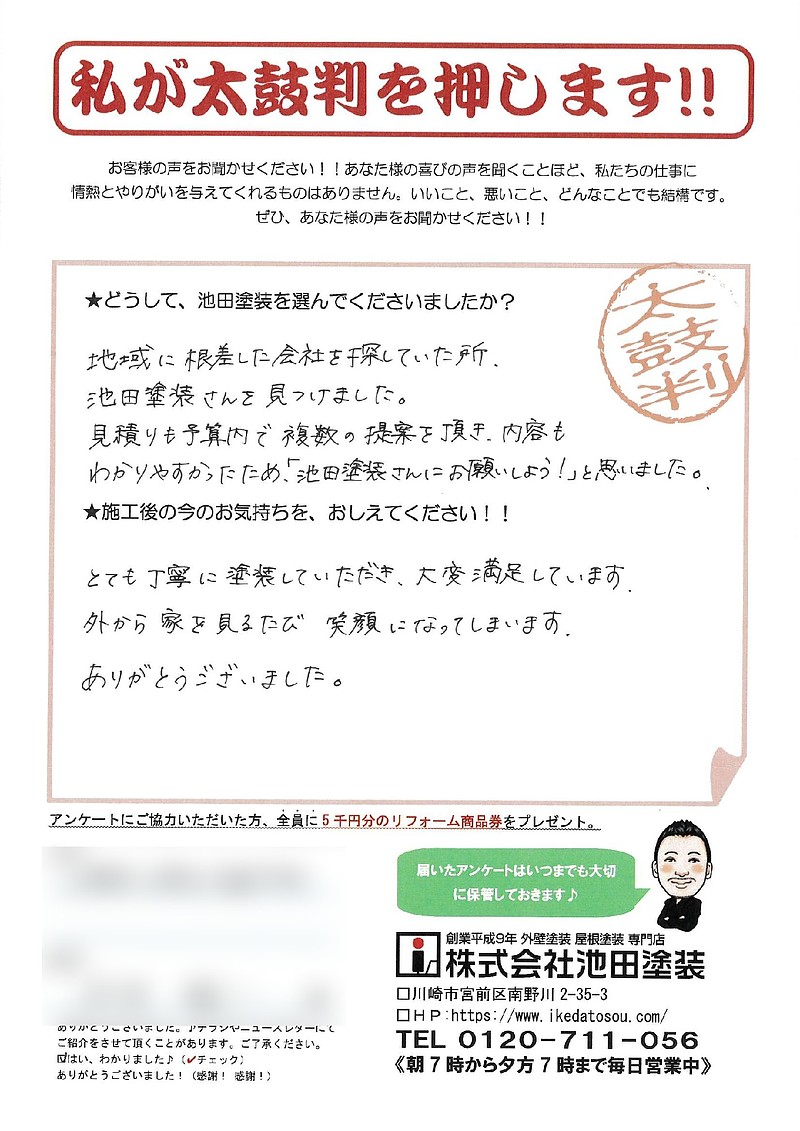 私が太鼓判を押します!!
お客様の声をお聞かせください！！あなた様の喜びの声を聞くことほど、私たちの仕事に
情熱とやりがいを与えてくれるものはありません。いいこと、悪いこと、どんなことでも結構です。
ぜひ、あなた様の声をお聞かせください！！
太鼓判
★どうして、池田塗装を選んでくださいましたか？
地域に根差した会社を探していた所、
池田塗装さんを見つけました。
見積りも予算内で複数の提案を頂き、内容も
わかりやすかったため、「池田塗装さんにお願いしよう！」と思いました。
★施工後の今のお気持ちを、おしえてください！！
とても丁寧に塗装していただき、大変満足しています。
外から家を見るたび 笑顔になってしまいます。
ありがとうございました。
アンケートにご協力いただいた方、全員に５千円分のリフォーム商品券をプレゼント。
届いたアンケートはいつまでも大切
に保管しておきます♪
創業平成9年 外壁塗装 屋根塗装 専門店
株式会社池田塗装
□川崎市宮前区南野川 2-35-3
□ＨＰ:https://www.ikedatosou.com/
TEL 0120-711-056
《朝７時から夕方７時まで毎日営業中》
ありがとうございました。アチラシやニュースレターにて
ご紹介をさせて頂くことがあります。ご了承ください。
☑はい、わかりました♪（✔チェック）
ありがとうございました！（感謝！ 感謝！）